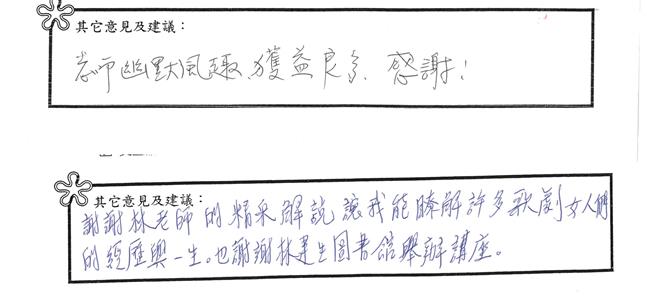 其它意見及建議：
老師幽默風趣、獲益良多、感謝！
其它意見及建議：
謝謝林老師的精采解說讓我能瞭解許多歌劇女人們
的經歷與一生。也謝謝林老生圖書館舉辦講座。